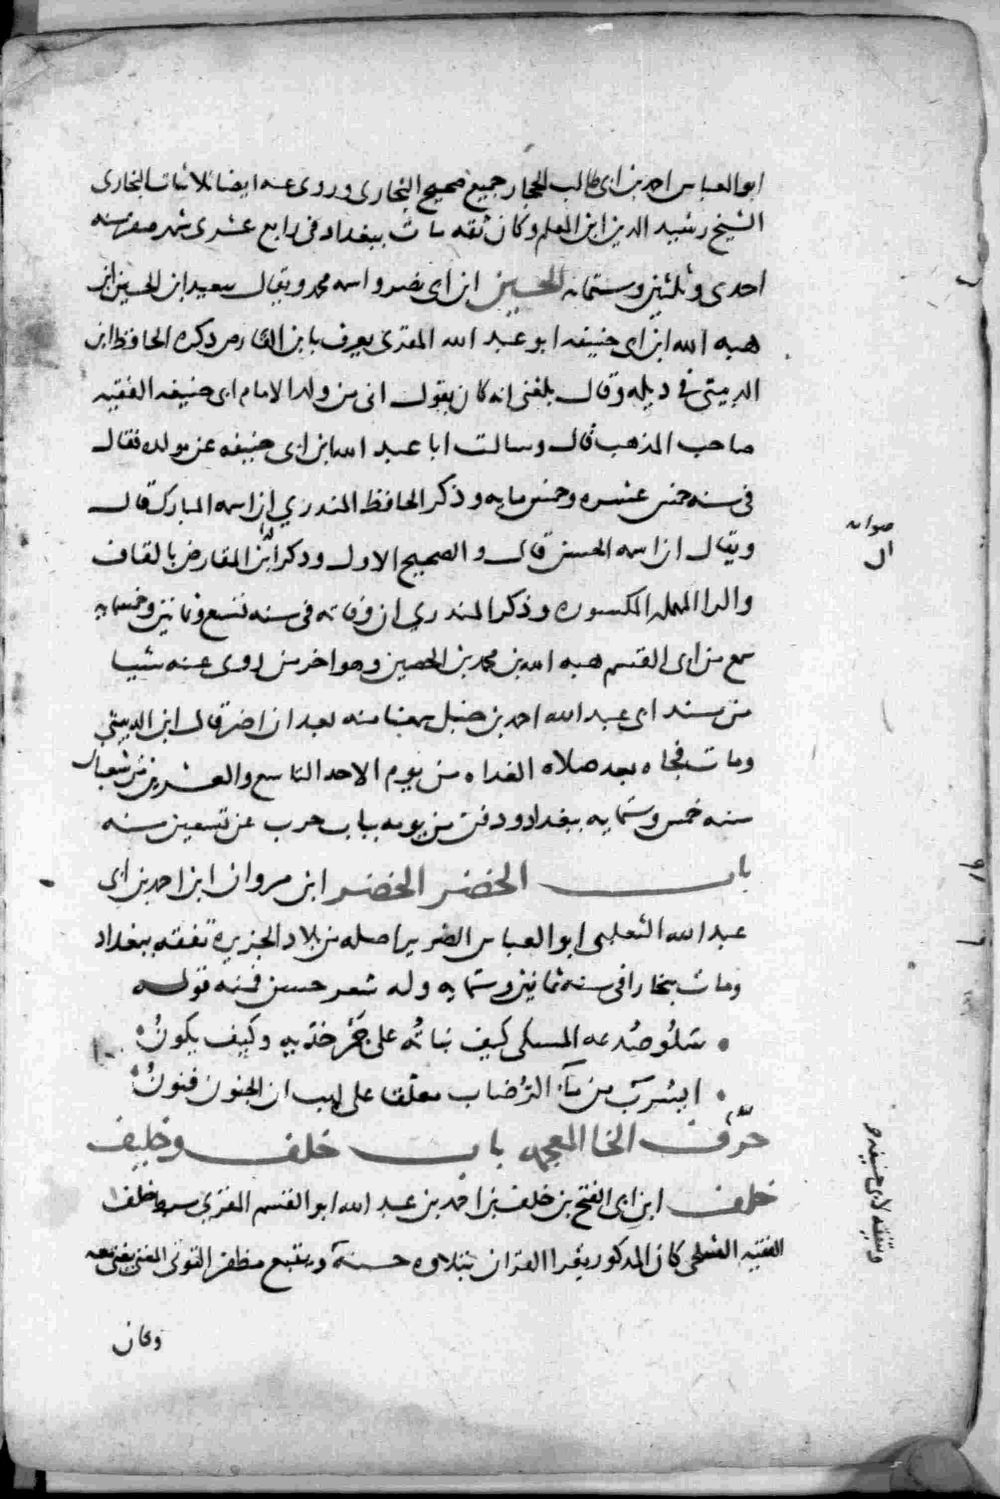 ابو العباس احمد بن ابى طالب الحجار جميع صحيح البخارى وروى عنه ايضا ثلاثيات البخارى
الشيخ رشيد الدين ابن المعلم وكان ثقه مات ببغداد فى رابع عشرى شهر صفر سنه
احدى وثلثين وستمائه الحسين ابن ابى نصر واسمه محمد ويقال سعيد ابن الحسين ابن
هبه الله ابن ابى حنيفه ابو عبد الله المقرى يعرف بابن القارص ذكره الحافظ ابن
الدبيثى فى ذيله وقال بلغنى انه كان يقول انى من ولد الامام ابى حنيفه الفقيه
صاحب المذهب قال وسالت ابا عبد الله ابن ابى حنيفه عن مولده فقال
فى سنه خمس عشره وخمس مايه وذكر الحافظ المنذري ان اسمه المبارك قال
ويقال ان اسمه الحسن قال والصحيح الاول وذكر ابن المقارض بالقاف
والرا المهمله المكسوره وذكر المنذري ان وفاته فى سنه تسع وثمانين وخمسمايه
سمع من ابى القسم هبه الله بن محمد بن الحصين وهو اخر من روى عنه شيا
من مسند ابى عبد الله احمد بن حنبل سمعنا منه بعد ان اضر قال ابن الدبيثي
ومات فجاه بعد صلاه الغداه من يوم الاحد التاسع والعشرين من شعبان
سنه خمس وستمايه ببغداد ودفن من يومه بباب حرب عن تسعين سنه
باب الخضر الخضر ابن مروان ابن احمد بن ابى
عبد الله الثعلبى ابو العباس الضرير اصله من بلاد الجزيره تفقه ببغداد
ومات ببخارا فى سنه ثمانين وستمايه وله شعر حسن فمنه قوله
سلو صدغه المسكى كيف نباته على جمر خديه وكيف يكون
ايشرب من ماء الرضاب معلقا على لهب ان الجنون فنون
حرف الخا المعجمه باب خلف وخليف
خلف ابن ابى الفتح بن خلف بن احمد بن عبد الله ابو القسم المقري سبط خلف
الفقيه كان المذكور يقرا القران بتلاوه حسنة ويتبع مظفر
وكان
صوابه
ال